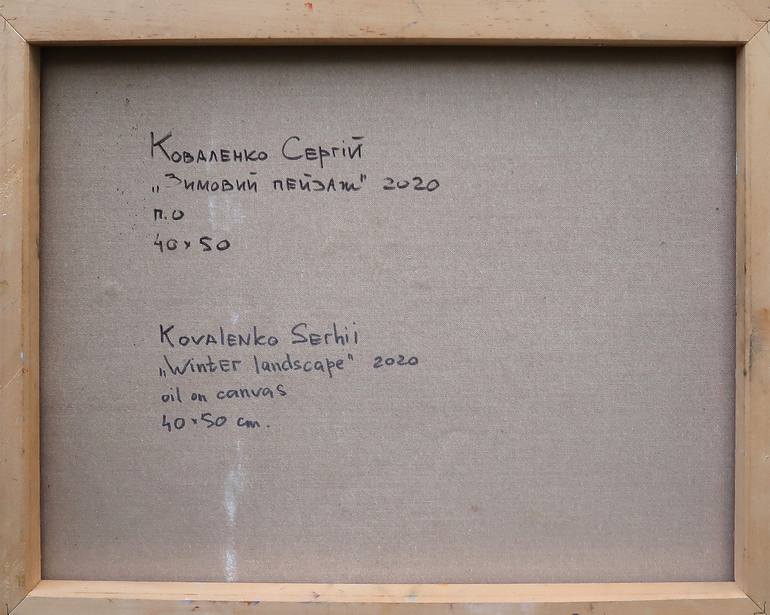 Коваленко Сергій
„Зимовий пейзаж" 2020
п.о
40×50
Kovalenko Serhii
„Winter landscape" 2020
oil on canvas
40×50 cm.